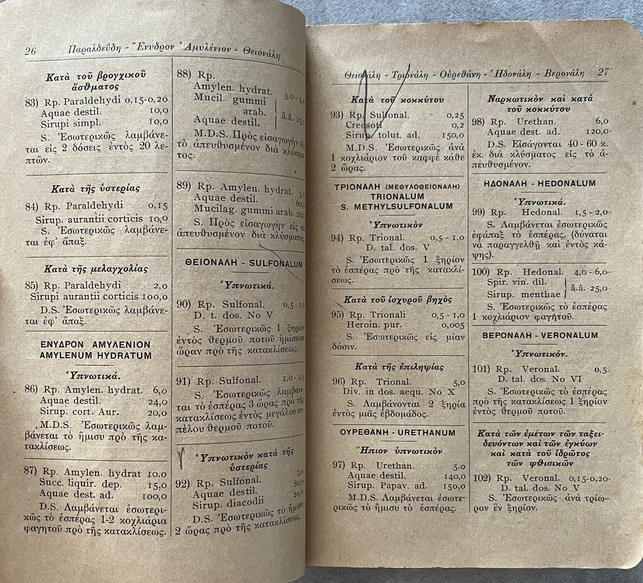 26 Παραλδεΰδη - Ἔνυδρον Ἀμυλένιον - Θειονάλη
Κατὰ τοῦ βρογχικοῦ
ἄσθματος
83) Rp. Paraldehydi 0,15-0,20
Aquae destil. 10,0
Sirupi simpl. 10,0
S. Ἐσωτερικῶς λαμβάνε-
ται εἰς 2 δόσεις ἐντὸς 20 λε-
πτῶν.
Κατὰ τῆς ὑστερίας
84) Rp. Paraldehydi 0,15
Sirup. aurantii corticis 10,0
S. Ἐσωτερικῶς λαμβάνε-
ται ἐφ' ἅπαξ.
Κατὰ τῆς μελαγχολίας
85) Rp. Paraldehydi 2,0
Sirupi aurantii corticis 100,0
D.S. Ἐσωτερικῶς λαμβάνε-
ται ἐφ' ἅπαξ.
ΕΝΥΔΡΟΝ ΑΜΥΛΕΝΙΟΝ
AMYLENUM HYDRATUM
Ὑπνωτικά.
86) Rp. Amylen. hydrat. 6,0
Aquae destil. 24,0
Sirup. cort. Aur. 20,0
M.D.S. Ἐσωτερικῶς λαμ-
βάνεται τὸ ἥμισυ πρὸ τῆς κα-
τακλίσεως.
87) Rp. Amylen. hydrat 10.0
Succ. liquir. dep. 15,0
Aquae dest. ad. 100,0
D.S. Λαμβάνεται ἐσωτερι-
κῶς τὸ ἑσπέρας 1-2 κοχλιάρια
φαγητοῦ πρὸ τῆς κατακλίσεως.
88) Rp.
Amylen. hydrat.
Mucil. gummi
arab.
Aquae destil. ā.ā.
M.D.S. Πρὸς εἰσαγωγὴν εἰς
τὸ ἀπευθυσμένον διὰ κλύσμα-
τος.
89) Rp. Amylen. hydrat.
Aquae destil.
Mucilag. gummi arab.
S. Πρὸς εἰσαγωγὴν εἰς τὸ
ἀπευθυσμένον διὰ κλύσματος.
ΘΕΙΟΝΑΛΗ - SULFONALUM
Ὑπνωτικά.
90) Rp. Sulfonal.
D. t. dos. No V
S. Ἐσωτερικῶς 1 ξηρίον
ἐντὸς θερμοῦ ποτοῦ ἡμίσειαν
ὥραν πρὸ τῆς κατακλίσεως.
91) Rp. Sulfonal.
S. Ἐσωτερικῶς λαμβάνε-
ται τὸ ἑσπέρας 3 ὥρας πρὸ τῆς
κατακλίσεως ἐντὸς μεγάλου κυ-
πέλου θερμοῦ ποτοῦ.
Ὑπνωτικὸν κατὰ τῆς
ὑστερίας
92) Rp. Sulfonal
Aquae destil.
Sirup. diacodii
D.S. Ἐσωτερικῶς τὸ ἥμισυ
2 ὥρας πρὸ τῆς κατακλίσεως.
Θειονάλη - Τριονάλη - Οὐρεθάνη - Ἡδονάλη - Βερονάλη 27
Κατὰ τοῦ κοκκύτου
93) Rp. Sulfonal. 0,25
Creosoti 0,2
Sirup. tolut. ad. 150,0
M.D.S. Ἐσωτερικῶς ἀνὰ
1 κοχλιάριον τοῦ καφφὲ κάθε
2 ὥρας.
ΤΡΙΟΝΑΛΗ (ΜΕΘΥΛΟΘΕΙΟΝΑΛΗ)
TRIONALUM
S. METHYLSULFONALUM
Ὑπνωτικὸν
94) Rp. Trional. 0,5 - 1,0
D. tal. dos. V
S. Ἐσωτερικῶς 1 ξηρίον
τὸ ἑσπέρας πρὸ τῆς κατακλί-
σεως.
Κατὰ τοῦ ἰσχυροῦ βηχὸς
95) Rp. Trionali 0,5 - 1,0
Heroin. pur. 0,005
S. Ἐσωτερικῶς εἰς μίαν
δόσιν.
Κατὰ τῆς ἐπιληψίας
96) Rp. Trional. 5,0
Div. in dos. aequ. No X
S. Λαμβάνονται 2 ξηρία
ἐντὸς μιᾶς ἑβδομάδος.
ΟΥΡΕΘΑΝΗ - URETHANUM
Ἤπιον ὑπνωτικὸν
97) Rp. Urethan. 5.0
Aquae destil. 140,0
Sirup. Papav. ad. 150,0
M.D.S. Λαμβάνεται ἐσωτε-
ρικῶς τὸ ἥμισυ τὸ ἑσπέρας.
Ναρκωτικὸν καὶ κατὰ
τοῦ κοκκύτου
98) Rp. Urethan. 6,0
Aquae dest. ad. 120,0
D.S. Εἰσάγονται 40 - 60 κ.
ἑκ. διὰ κλύσματος εἰς τὸ ἀ-
πευθυσμένον.
ΗΔΟΝΑΛΗ - HEDONALUM
Ὑπνωτικά.
99) Rp. Hedonal. 1,5 - 2,0
S. Λαμβάνεται ἐσωτερικῶς
ἐφάπαξ τὸ ἑσπέρας. (δύναται
νὰ παραγγελθῇ καὶ ἐντὸς κά-
ψης).
100) Rp. Hedonal. 4,0 - 6,0
Spir. vin. dil.
Sirup. menthae ā.ā. 25,0
S. Ἐσωτερικῶς τὸ ἑσπέρας
1 κοχλιάριον φαγητοῦ.
ΒΕΡΟΝΑΛΗ - VERONALUM
Ὑπνωτικόν.
101) Rp. Veronal. 0,5
D. tal. dos. No VI
S. Ἐσωτερικῶς τὸ ἑσπέρας
πρὸ τῆς κατακλίσεως 1 ξηρίον
ἐντὸς θερμοῦ ποτοῦ.
Κατὰ τῶν ἐμέτων τῶν ταξει-
δευόντων καὶ τῶν ἐγκύων
καὶ κατὰ τοῦ ἱδρῶτος
τῶν φθισικῶν
102) Rp. Veronal. 0,15-0,20
D. tal. dos. No V
S. Ἐσωτερικῶς ἀνὰ τρίω-
ρον ἓν ξηρίον.